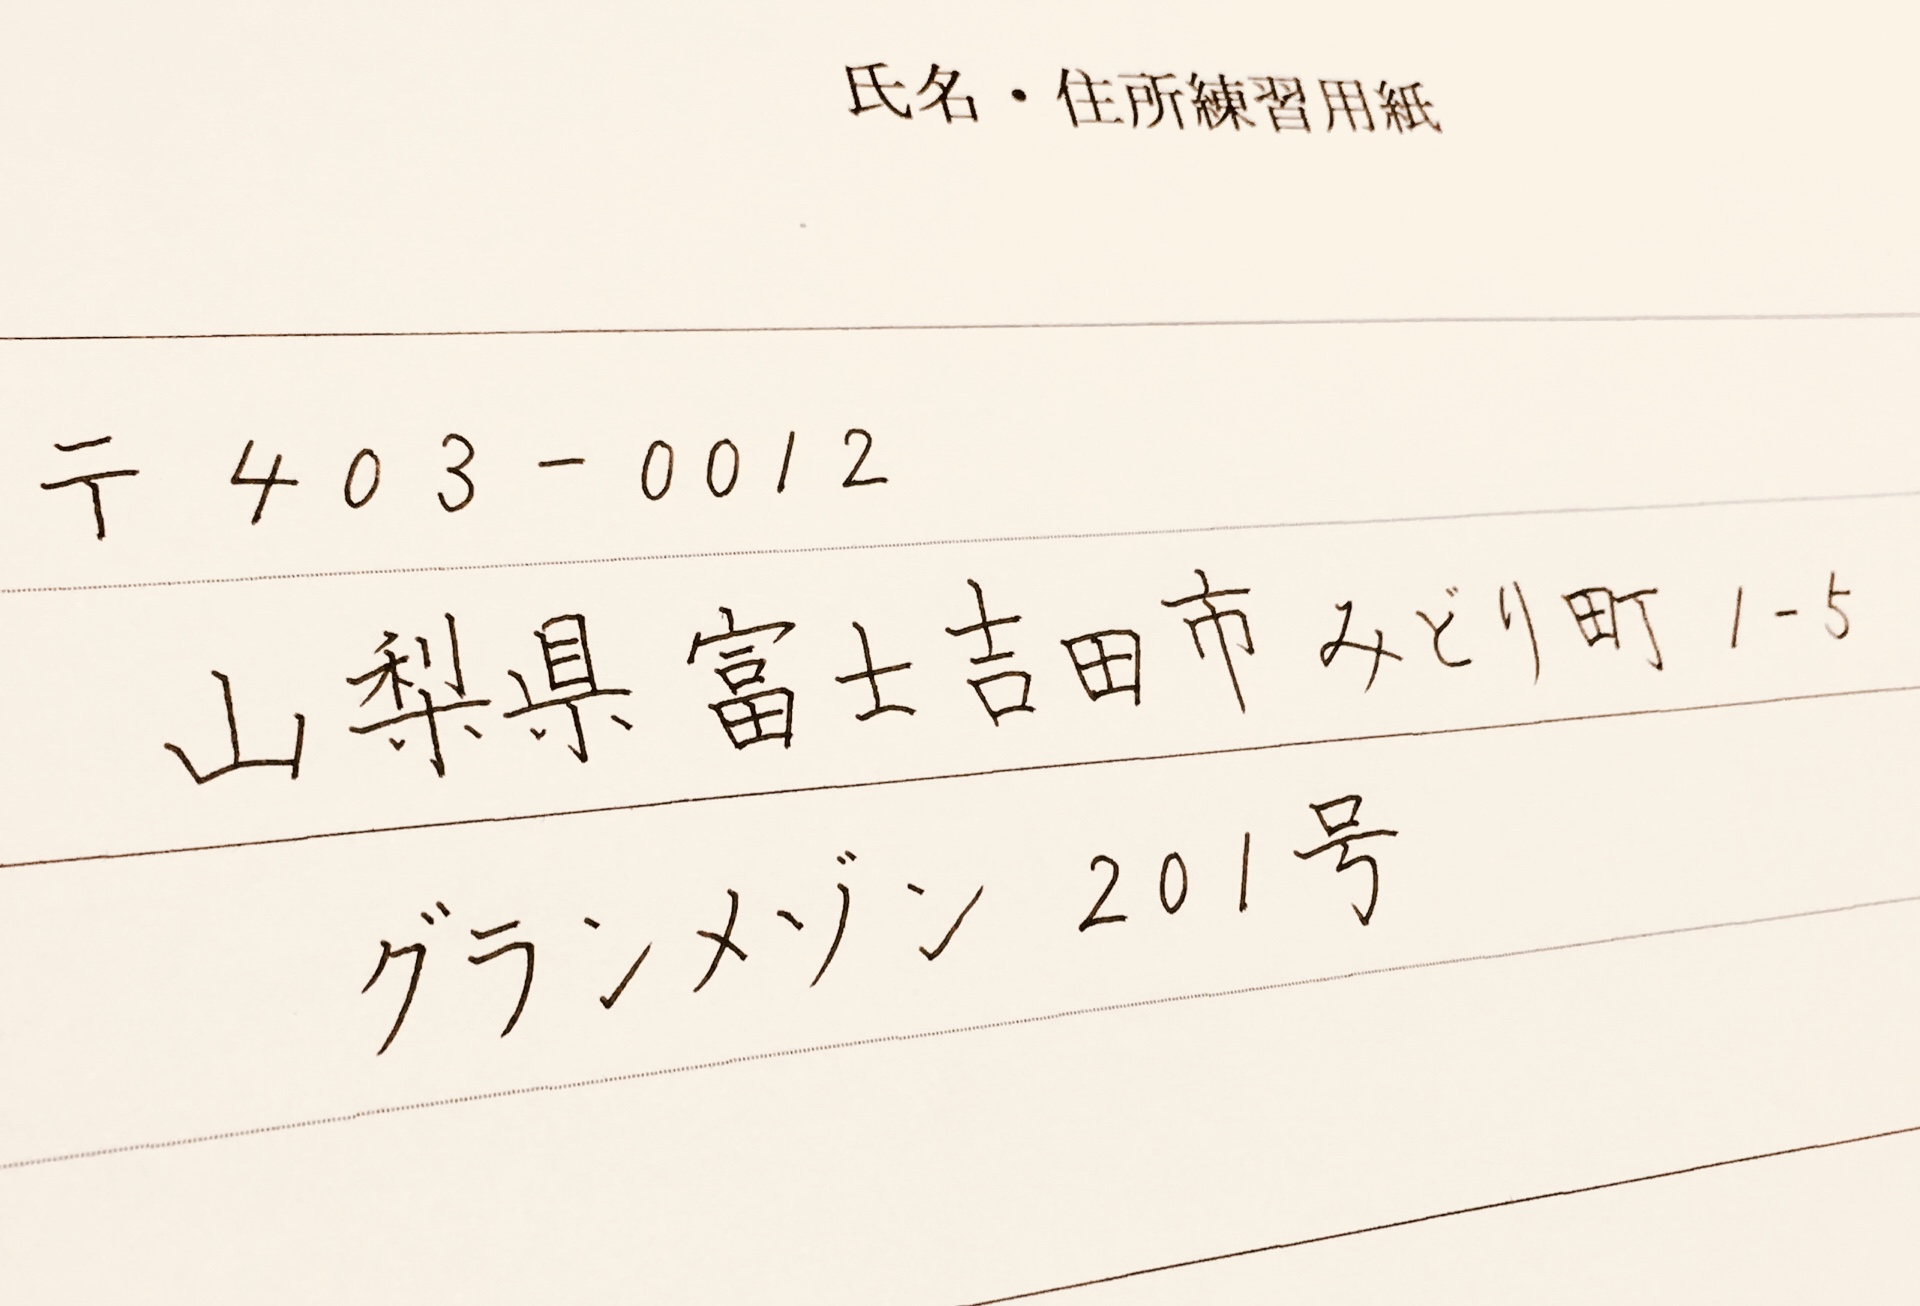 氏名・住所練習用紙
〒 403-0012
山梨県富士吉田市みどり町1-5
グランメゾン 201号